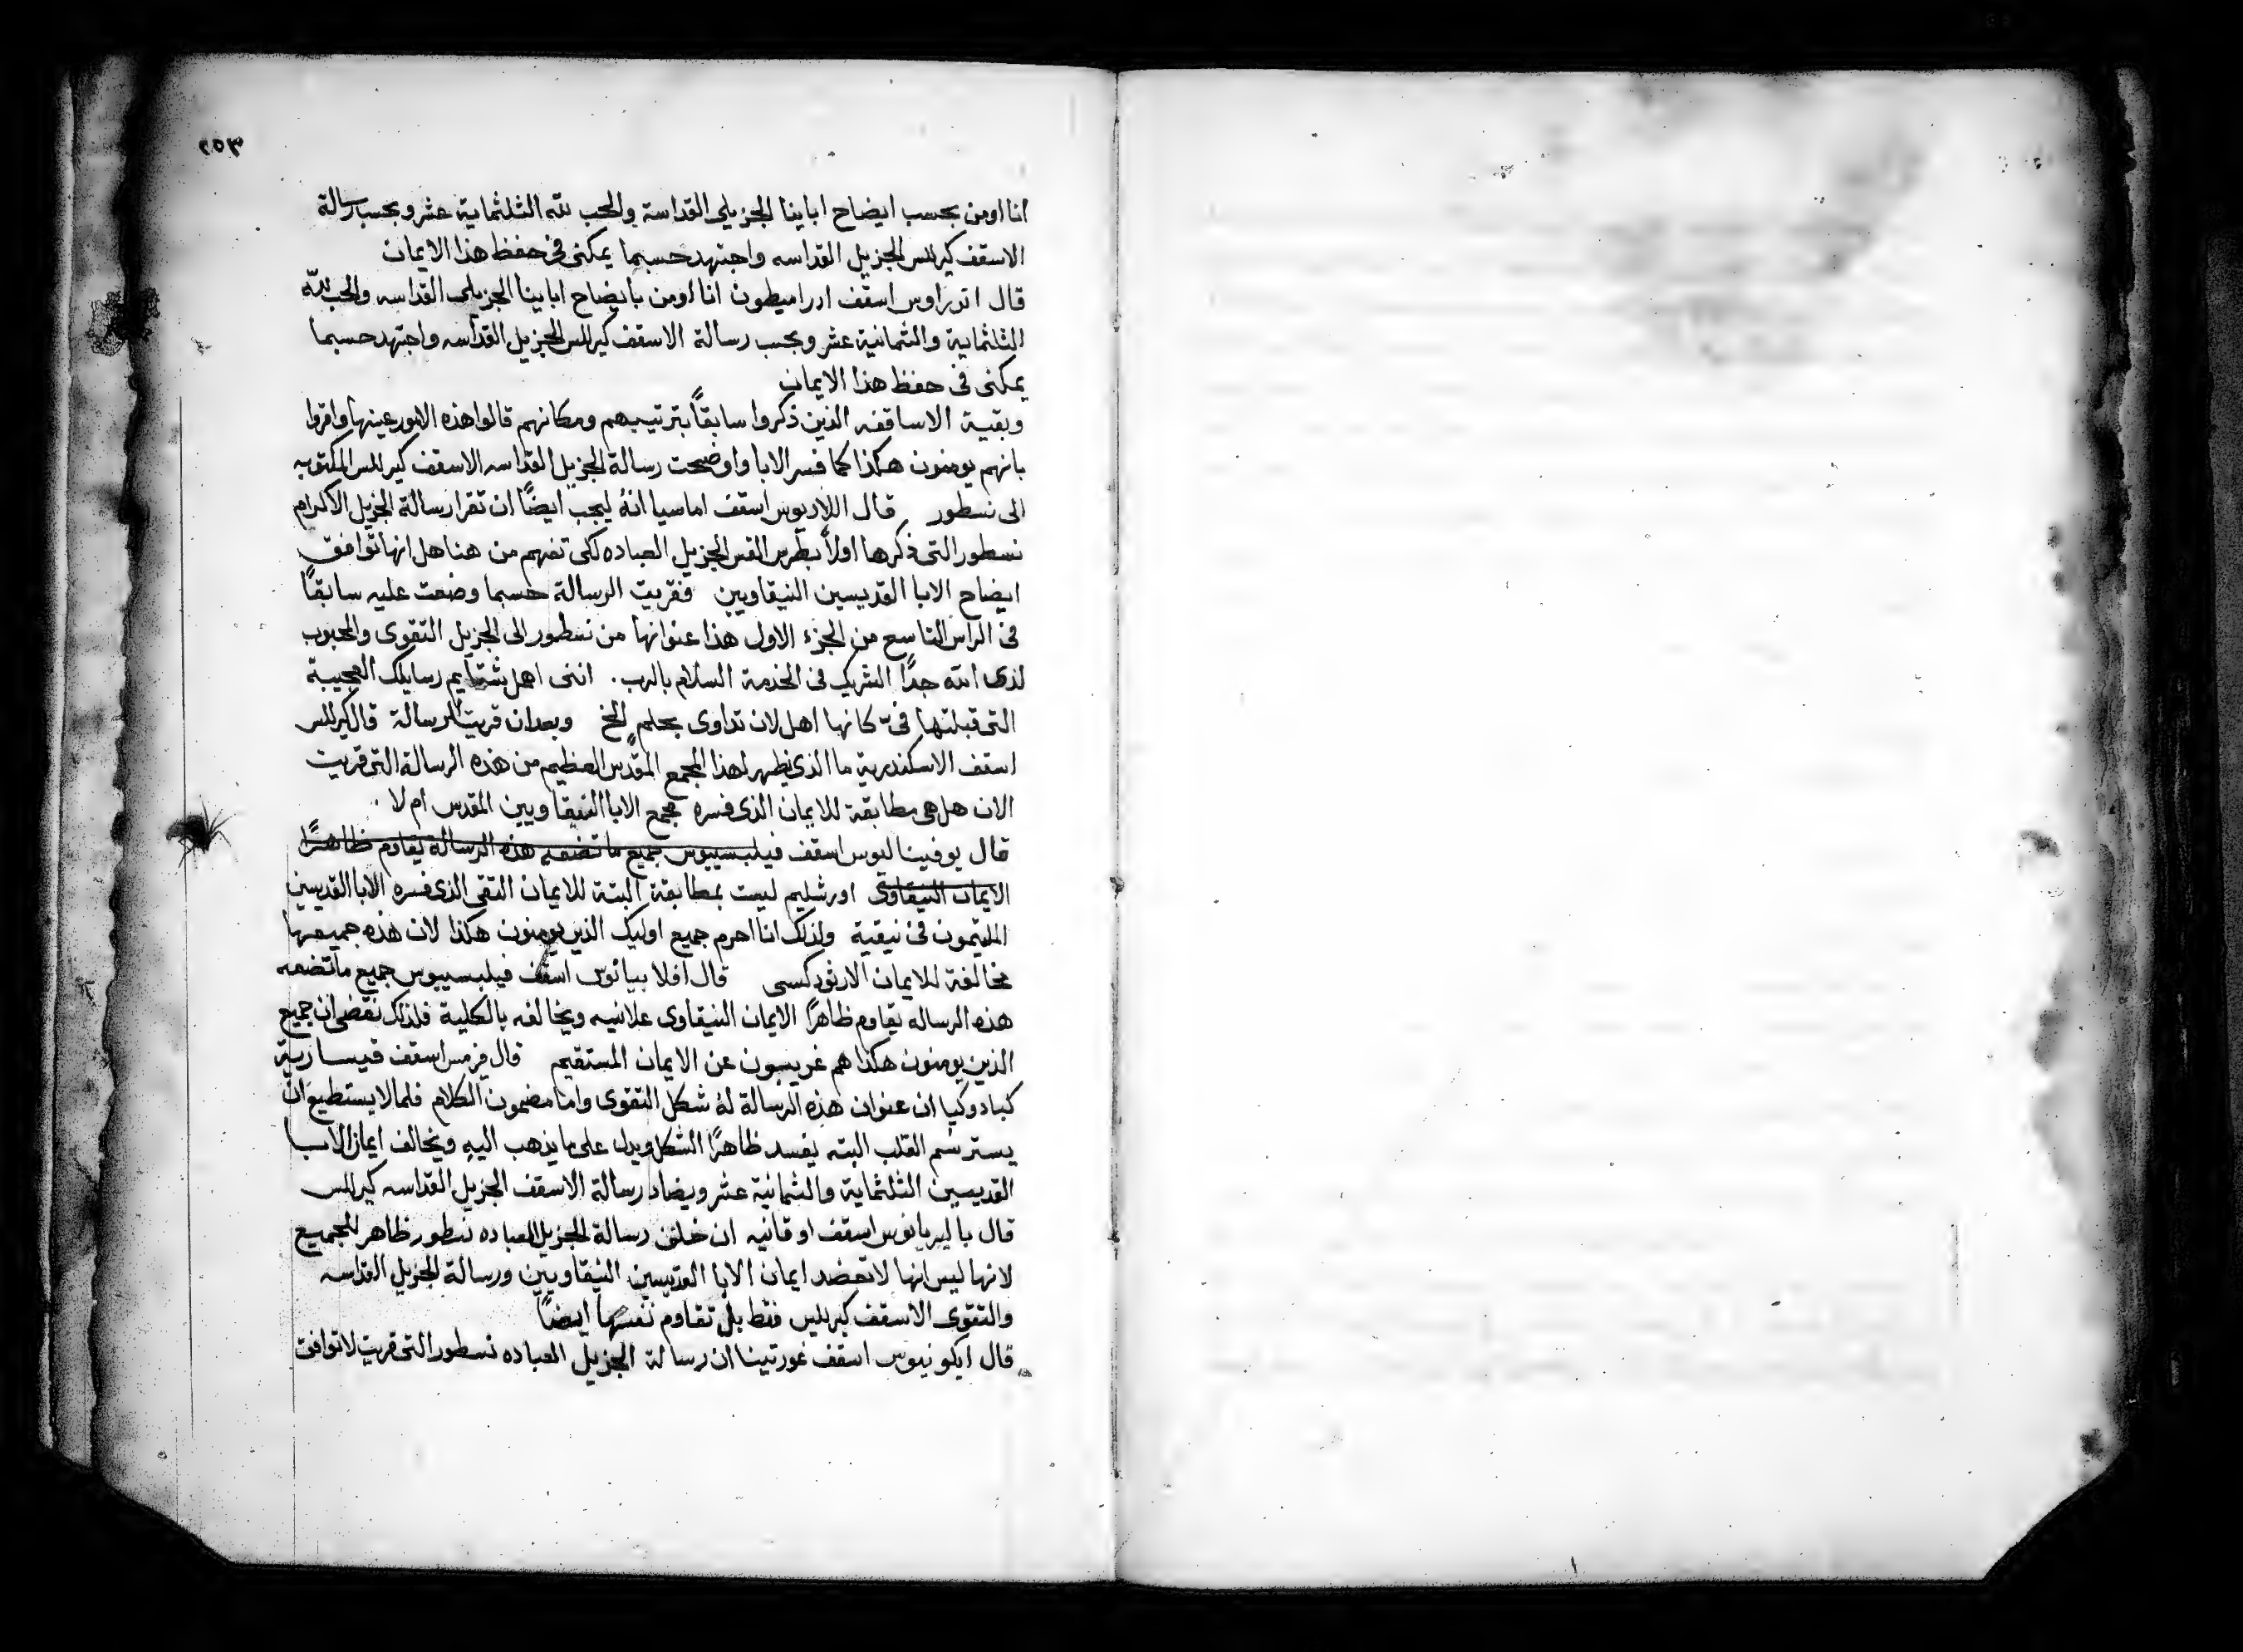 ٢٥٣
انا اومن بحسب ايضاح اباينا الجزيلى القداسة والحب لله الثلثماية عشر وبحسب رسالة
الاسقف كيرللس الجزيل القداسه واجتهد حسبما يمكنى فى حفظ هذا الايمان
قال اندراوس اسقف ادراميطون انا اومن بايضاح اباينا الجزيلى القداسه والحب لله
الثلثماية والثمانية عشر وبحسب رسالة الاسقف كيرللس الجزيل القداسه واجتهد حسبما
يمكنى فى حفظ هذا الايمان
وبقية الاساقفه الذين ذكروا سابقاً بترتيبهم ومكانهم قالوا هذه الامور عينها واقروا
بانهم يومنون هكذا كما فسر الابا واوضحت رسالة الجزيل القداسه الاسقف كيرللس المكتوبه
الى نسطور قال اللاديوس اسقف اماسيا انهُ ليجب ايضًا ان تقرا رسالة الجزيل الاكرام
نسطور التى ذكرها اولاً بطرس القس الجزيل العباده لكى تفهم من هنا هل انها توافق
ايضاح الابا القديسين النيقاويين فقريت الرسالة حسبما وضعت عليه سابقًا
فى الراس التاسع من الجزء الاول هذا عنوانها من نسطور الى الجزيل التقوى والمحبوب
لدى الله جدًا الشريك فى الخدمة السلام بالرب . اننى اهمل شتايم رسايلك العجيبة
التى قبلتها فىّ كانها اهل لان تداوى بحلمٍ الخ وبعد ان قريت الرسالة قال كيرللس
اسقف الاسكندرية ما الذى يظهر لهذا المجمع المقدس العظيم من هذه الرسالة التى قريت
الان هل هى مطابقة للايمان الذى فسره مجمع الابا النيقاويين المقدس ام لا .
قال يوفيناليوس اسقف فيلبسيبوس جميع ما تضمه هذه الرسالة يقاوم ظاهرًا
الايمان النيقاوى اورشليم ليست بمطابقة البتة للايمان التقى الذى فسره الابا القديسين
الملتيمون فى نيقية ولذلك انا احرم جميع اوليك الذين يومنون هكذا لان هذه جميعها
مخالفة للايمان الارثودكسى قال افلابيانوس اسقف فيلبسيبوس جميع ما تضمه
هذه الرساله يقاوم ظاهرًا الايمان النيقاوى علانيه ويخالفه بالكلية فلذلك نقضى ان جميع
الذين يومنون هكذا هم غريبون عن الايمان المستقيم قال فرمس اسقف قيسارية
كبادوكيا ان عنوان هذه الرسالة لهُ شكل التقوى واما مضمون الكلام فلما لا يستطيع ان
يستر سم القلب البته يفسد ظاهرًا الشكل ويدل على ما يذهب اليهِ ويخالف ايمان الابا
القديسين الثلثماية والثمانية عشر ويضاد رسالة الاسقف الجزيل القداسه كيرللس
قال باليريانوس اسقف اوقانيه ان خلف رسالة الجزيل العباده نسطور ظاهر للجميع
لانها ليس انها لا تعضد ايمان الابا القديسين النيقاويين ورسالة الجزيل القداسه
والتقوى الاسقف كيرلليس فقط بل تقاوم نفسها ايضًا
قال ايكونيوس اسقف غورتينا ان رسالة الجزيل العباده نسطور التى قريت لا توافق